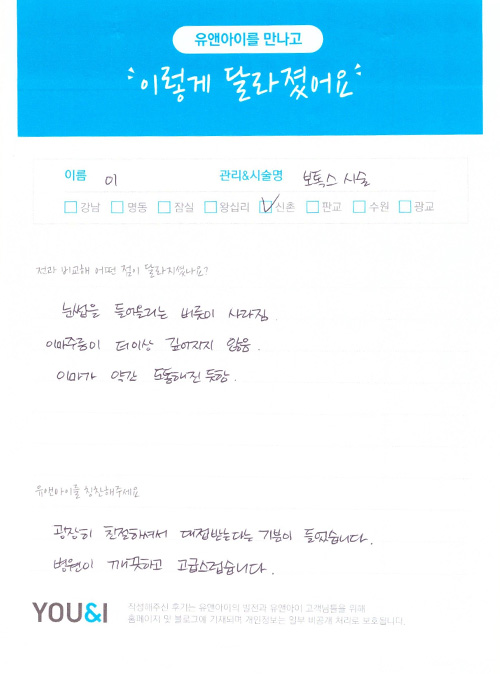 유앤아이를 만나고
이렇게 달라졌어요
이름 이 관리&시술명 보톡스 시술
강남 명동 잠실 왕십리 신촌 판교 수원 광교
전과 비교해 어떤 점이 달라지셨나요?
눈썹을 들어올리는 버릇이 사라짐.
이마주름이 더이상 깊어지지 않음.
이마가 약간 도톰해진 듯함.
유앤아이를 칭찬해주세요
굉장히 친절하셔서 대접받는다는 기분이 들었습니다.
병원이 깨끗하고 고급스럽습니다.
YOU&I 작성해주신 후기는 유앤아이의 발전과 유앤아이 고객님들을 위해
홈페이지 및 블로그에 기재되며 개인정보는 일부 비공개 처리로 보호됩니다.